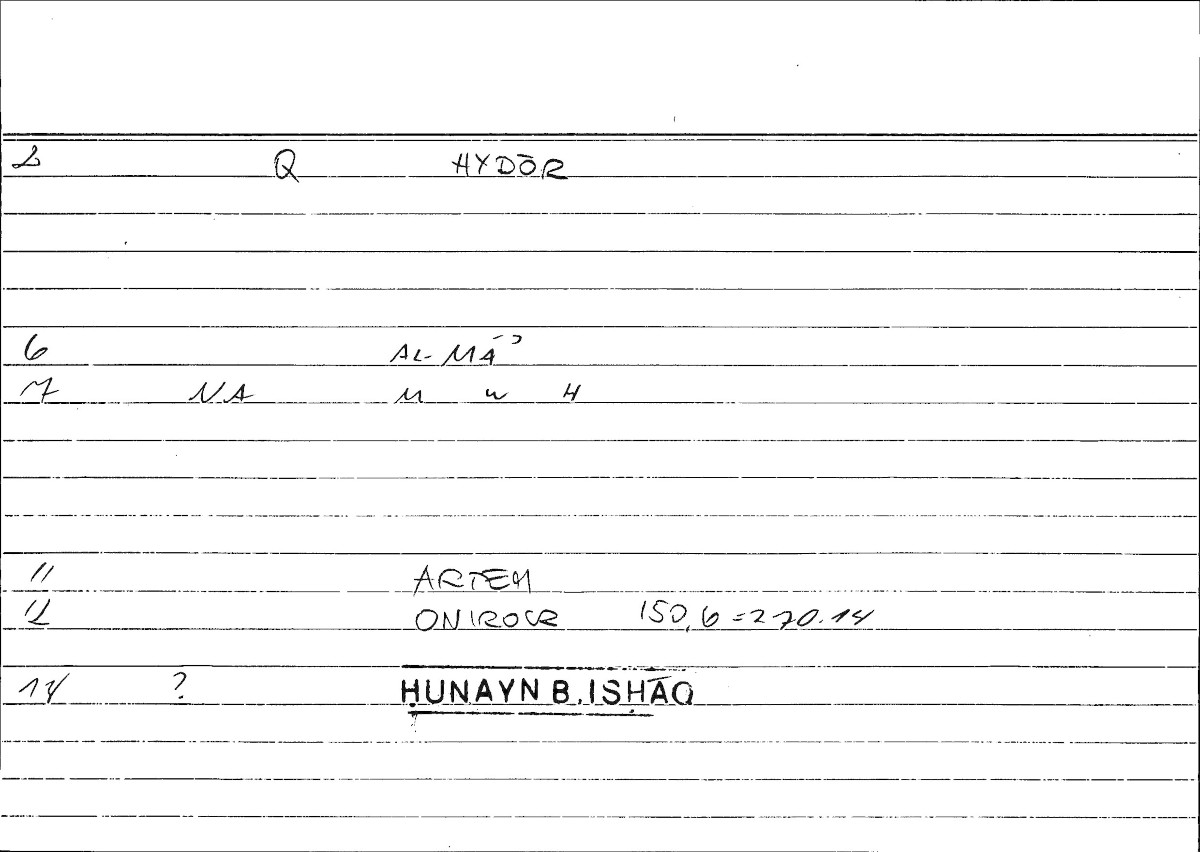 2 Q HYDŌR
6 AL-MĀʾ
7 NA M W H
11 ARTEM
12 ONIROCR 150,6 = 270.14
14 ? ḤUNAYN B. ISḤĀQ